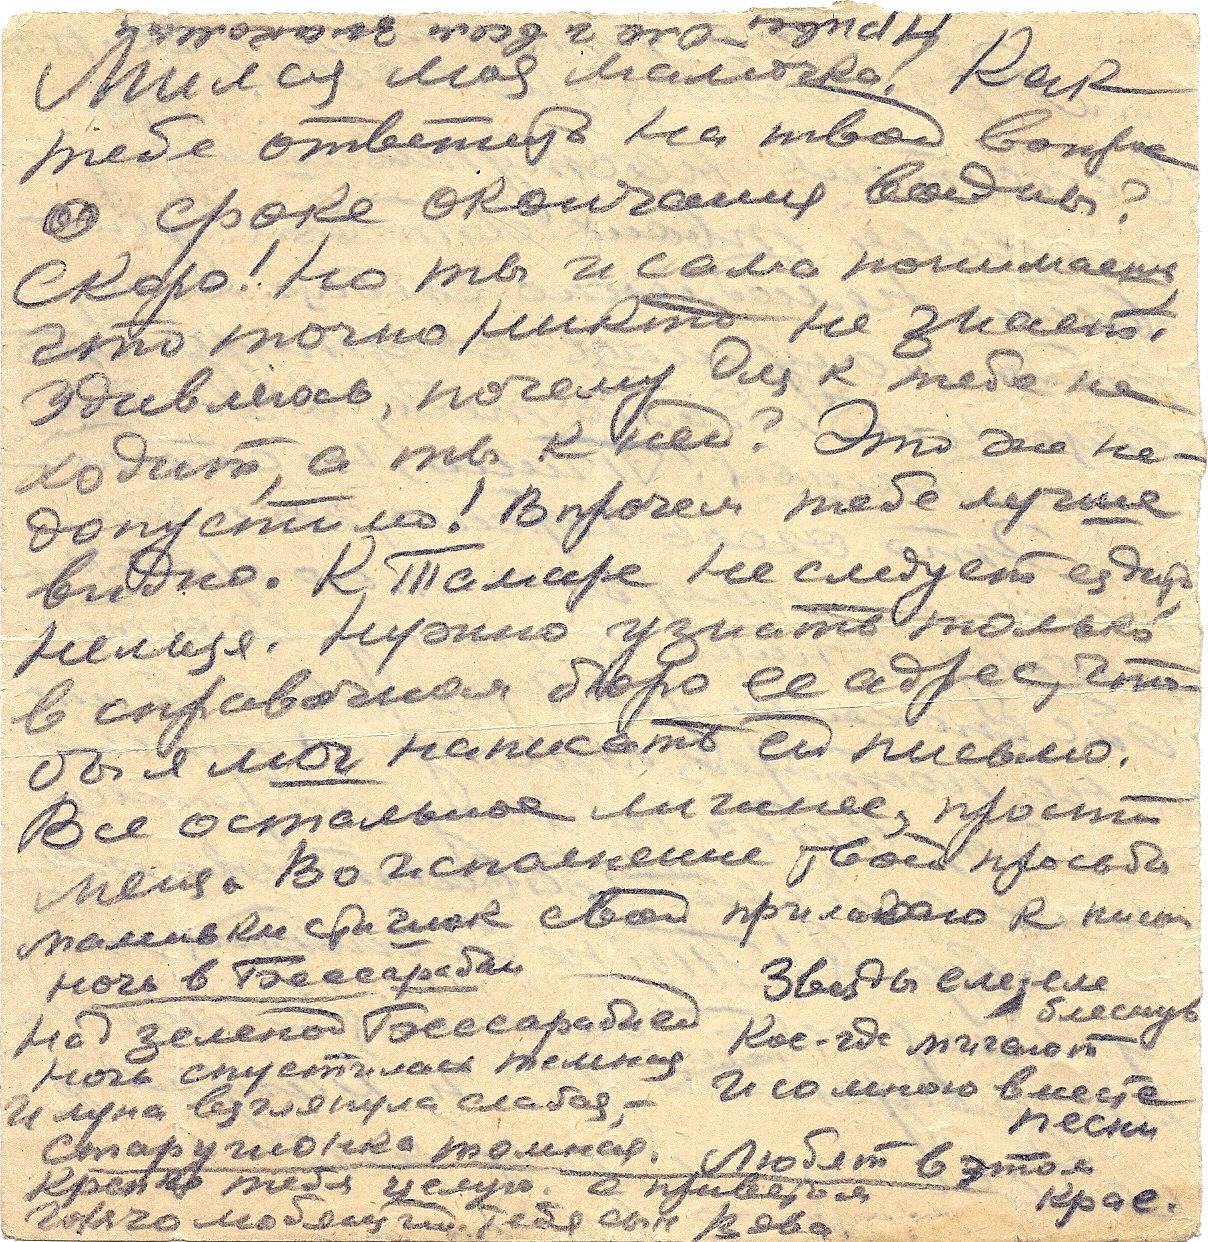 Привет Оле и всем знакомым
Милая моя мамочка! Как
тебе ответить на твой вопрос
о сроке окончания войны?
Скоро! Но ты и сама понимаешь
что точно никто не знает.
Удивляюсь, почему Оля к тебе не
ходит, а ты к ней? Это же не-
допустимо! Впрочем тебе лучше
видно. К Тамаре не следует ездить
нельзя. Нужно узнать только
в справочном бюро ее адрес, что
бы я мог написать ей письмо.
Все остальное лишнее, прости
меня. Во исполнение твоей просьбы
маленький стишок свой прилагаю к письму
Ночь в Бессарабии
Над зеленой Бессарабией
Ночь спустилась темная
И луна взглянула слабая, –
Старушонка томная.
Звезды еле-еле
блеснув
Кое-где мигают
И со мною вместе
песни
Любят в этом
крае.
Крепко тебя целую. С приветом
горячо любящий тебя сын Вова.